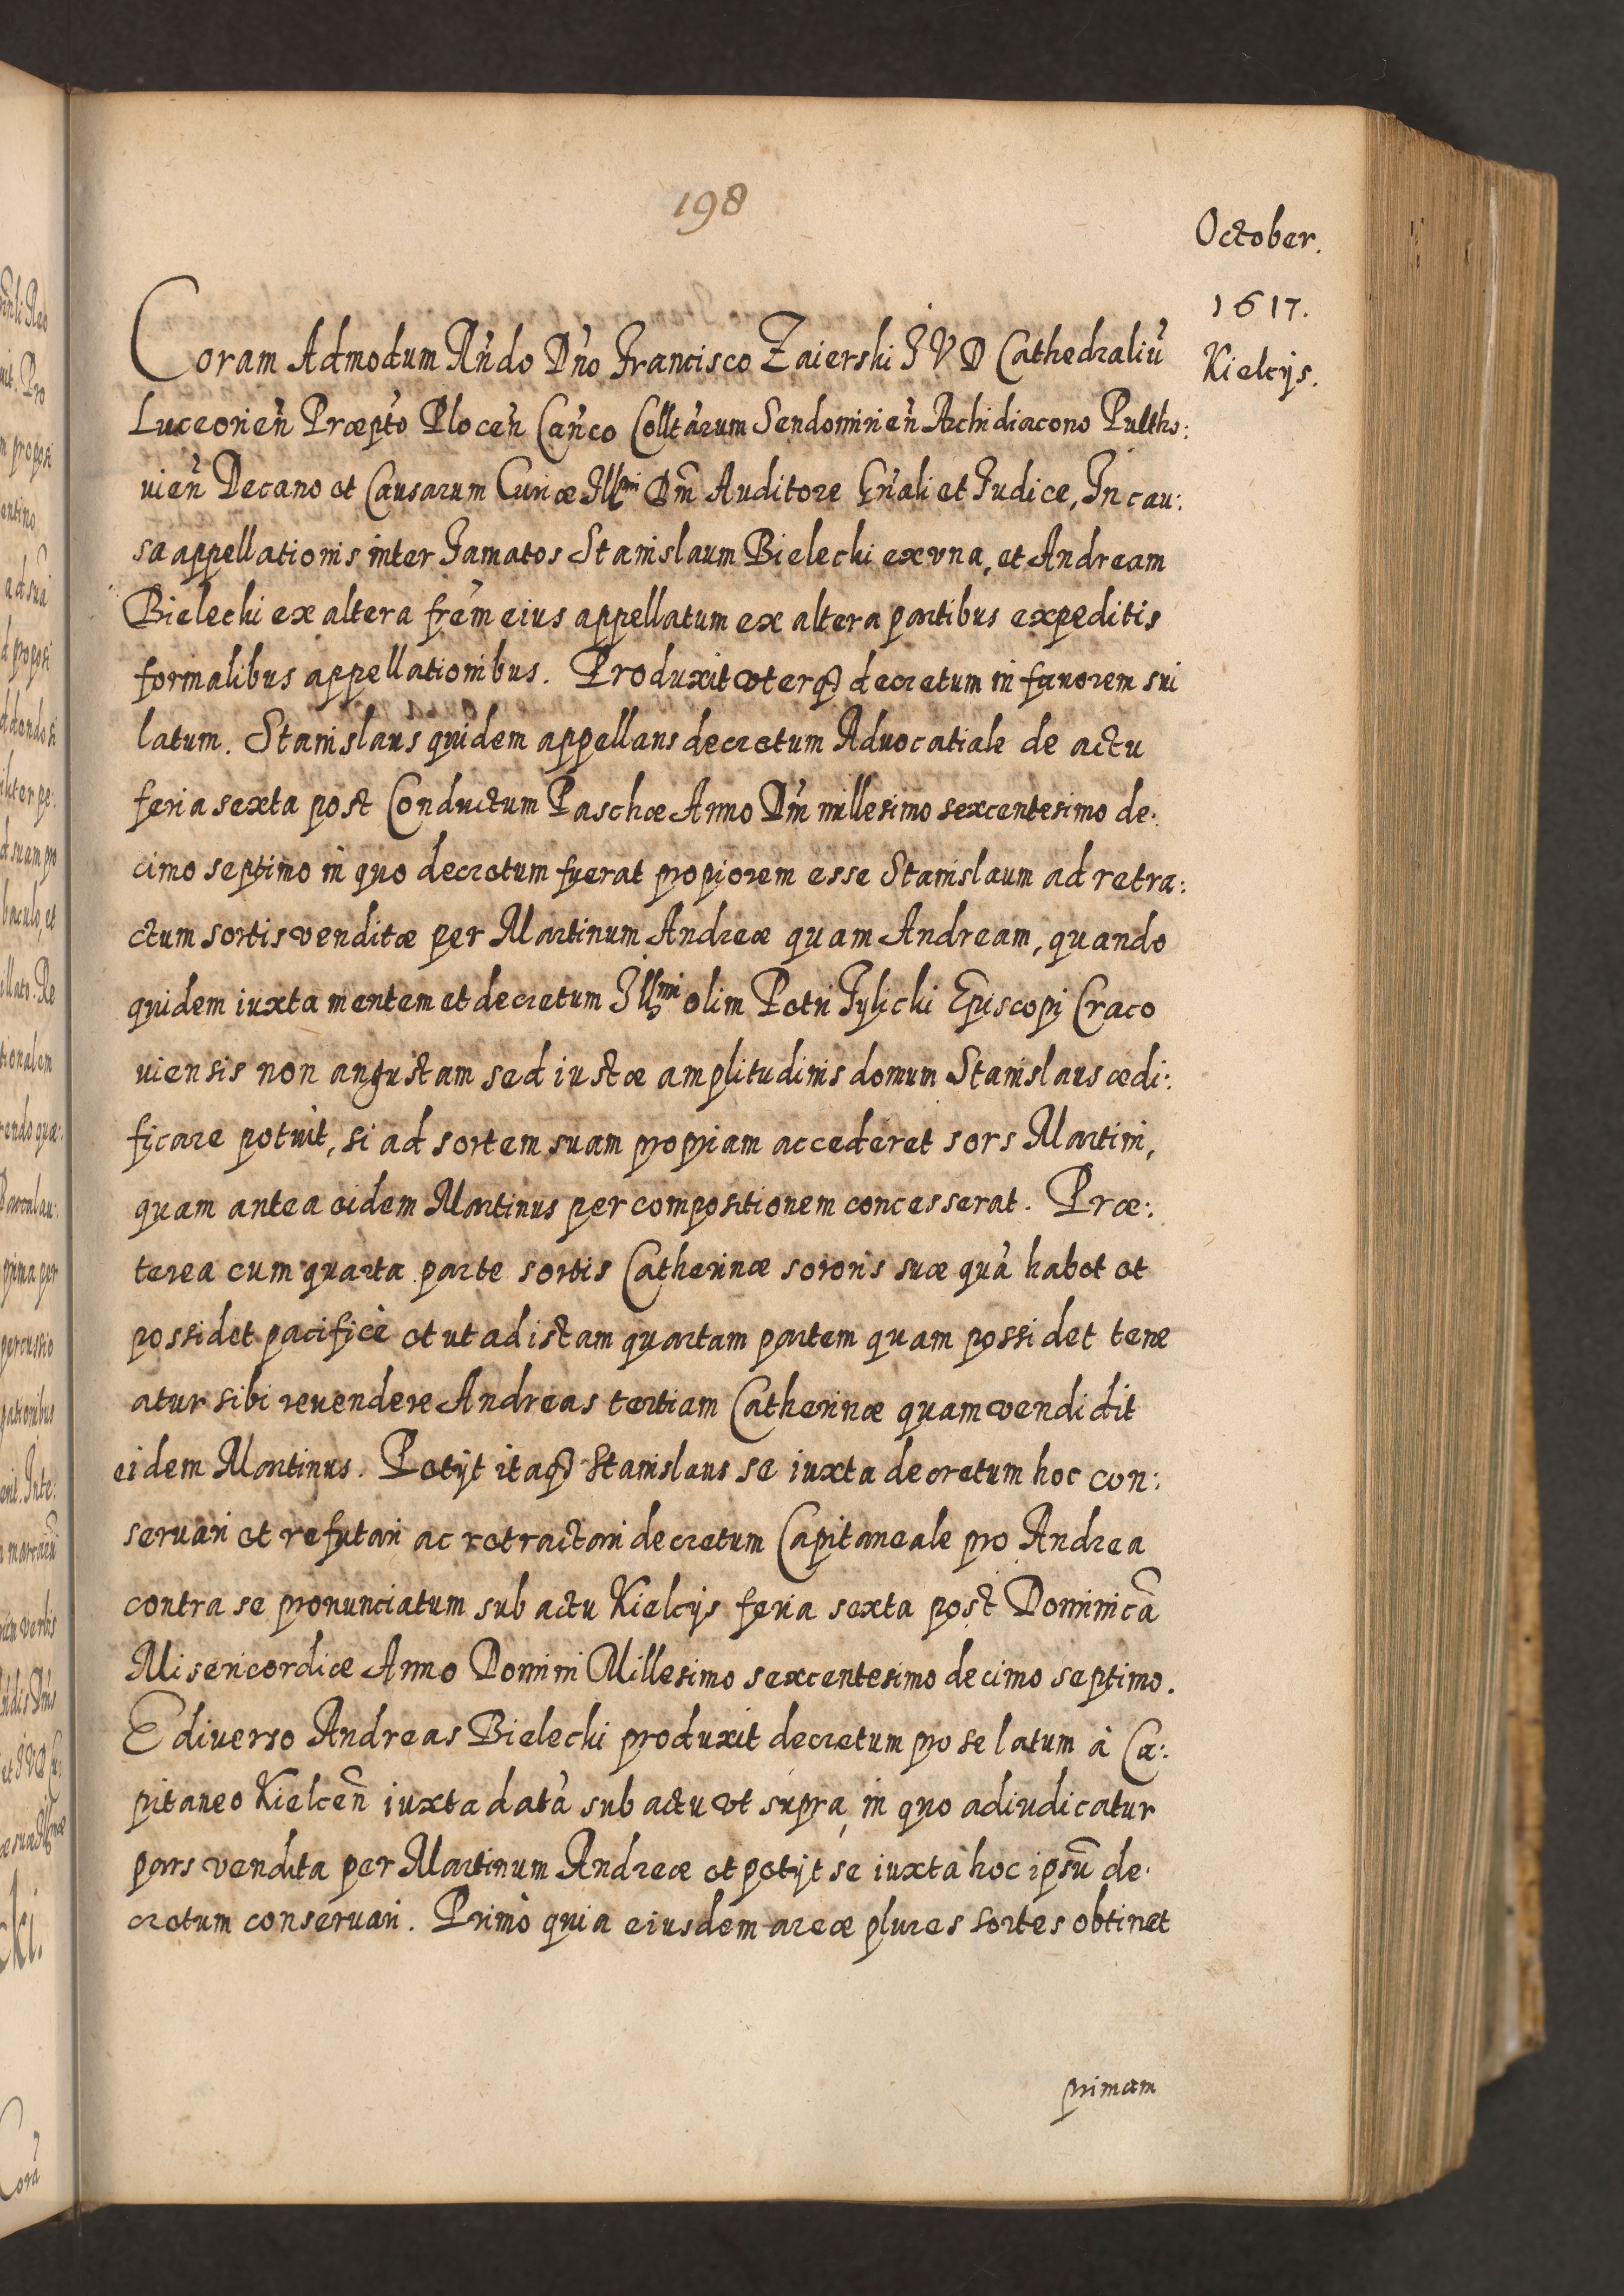 198
October.
1617.
Kielcijs.
Coram Admodum Rńdo Dńo Francisco Zaierski I V D Cathedraliu᷃
Luceorień Præpto Plocen Cańco Colltarum Sendomirień Archidiacono Pultho:
uień Decano et Causarum Curiæ Illmi Dm̃ Auditore Gńali et Iudice, In cau:
sa appellationis inter Famatos Stanislaum Bielecki ex vna, et Andream
Bielecki ex altera frem eius appellatum ex altera partibus expeditis
formalibus appellationibus. Produxit vterq decretum in fauorem sui
latum. Stanislaus quidem appellans decretum Aduocatiale de actu
feria sexta post Conductum Paschæ Anno Dni millesimo sexcentesimo de:
cimo septimo in quo decretum fuerat propiorem esse Stanislaum ad retra:
ctum sortis venditæ per Martinum Andreæ quam Andream, quando
quidem iuxta mentem et decretum Illmi olim Petri Tylicki Episcopi Craco
uiensis non angustam sed iustæ amplitudinis domum Stanislaus ædi:
ficare potuit, si ad sortem suam propriam accederet sors Martini,
quam antea eidem Martinus per compositionem concesserat. Præ:
terea cum quarta parte sortis Catherinæ sororis suæ quà habet et
possidet pacificè et ut ad istam quartam partem quam possidet tene
atur sibi reuendere Andreas tertiam Catherinæ quam vendidit
eidem Martinus. Petijt itaq Stanislaus se iuxta decretum hoc con:
seruari et refutari ac retractari decretum Capitaneale pro Andrea
contra se pronunciatum sub actu Kielcijs feria sexta post Dominicã
Misericordiæ Anno Domini Millesimo sexcentesimo decimo septimo.
E diuerso Andreas Bielecki produxit decretum pro se latum à Ca:
pitaneo Kielceñ iuxta datà sub actu vt supra, in quo adiudicatur
pars vendita per Martinum Andreæ et petijt se iuxta hoc ipsũ de:
cretum conseruari. Primò quia eiusdem areæ plures sortes obtinet
primam